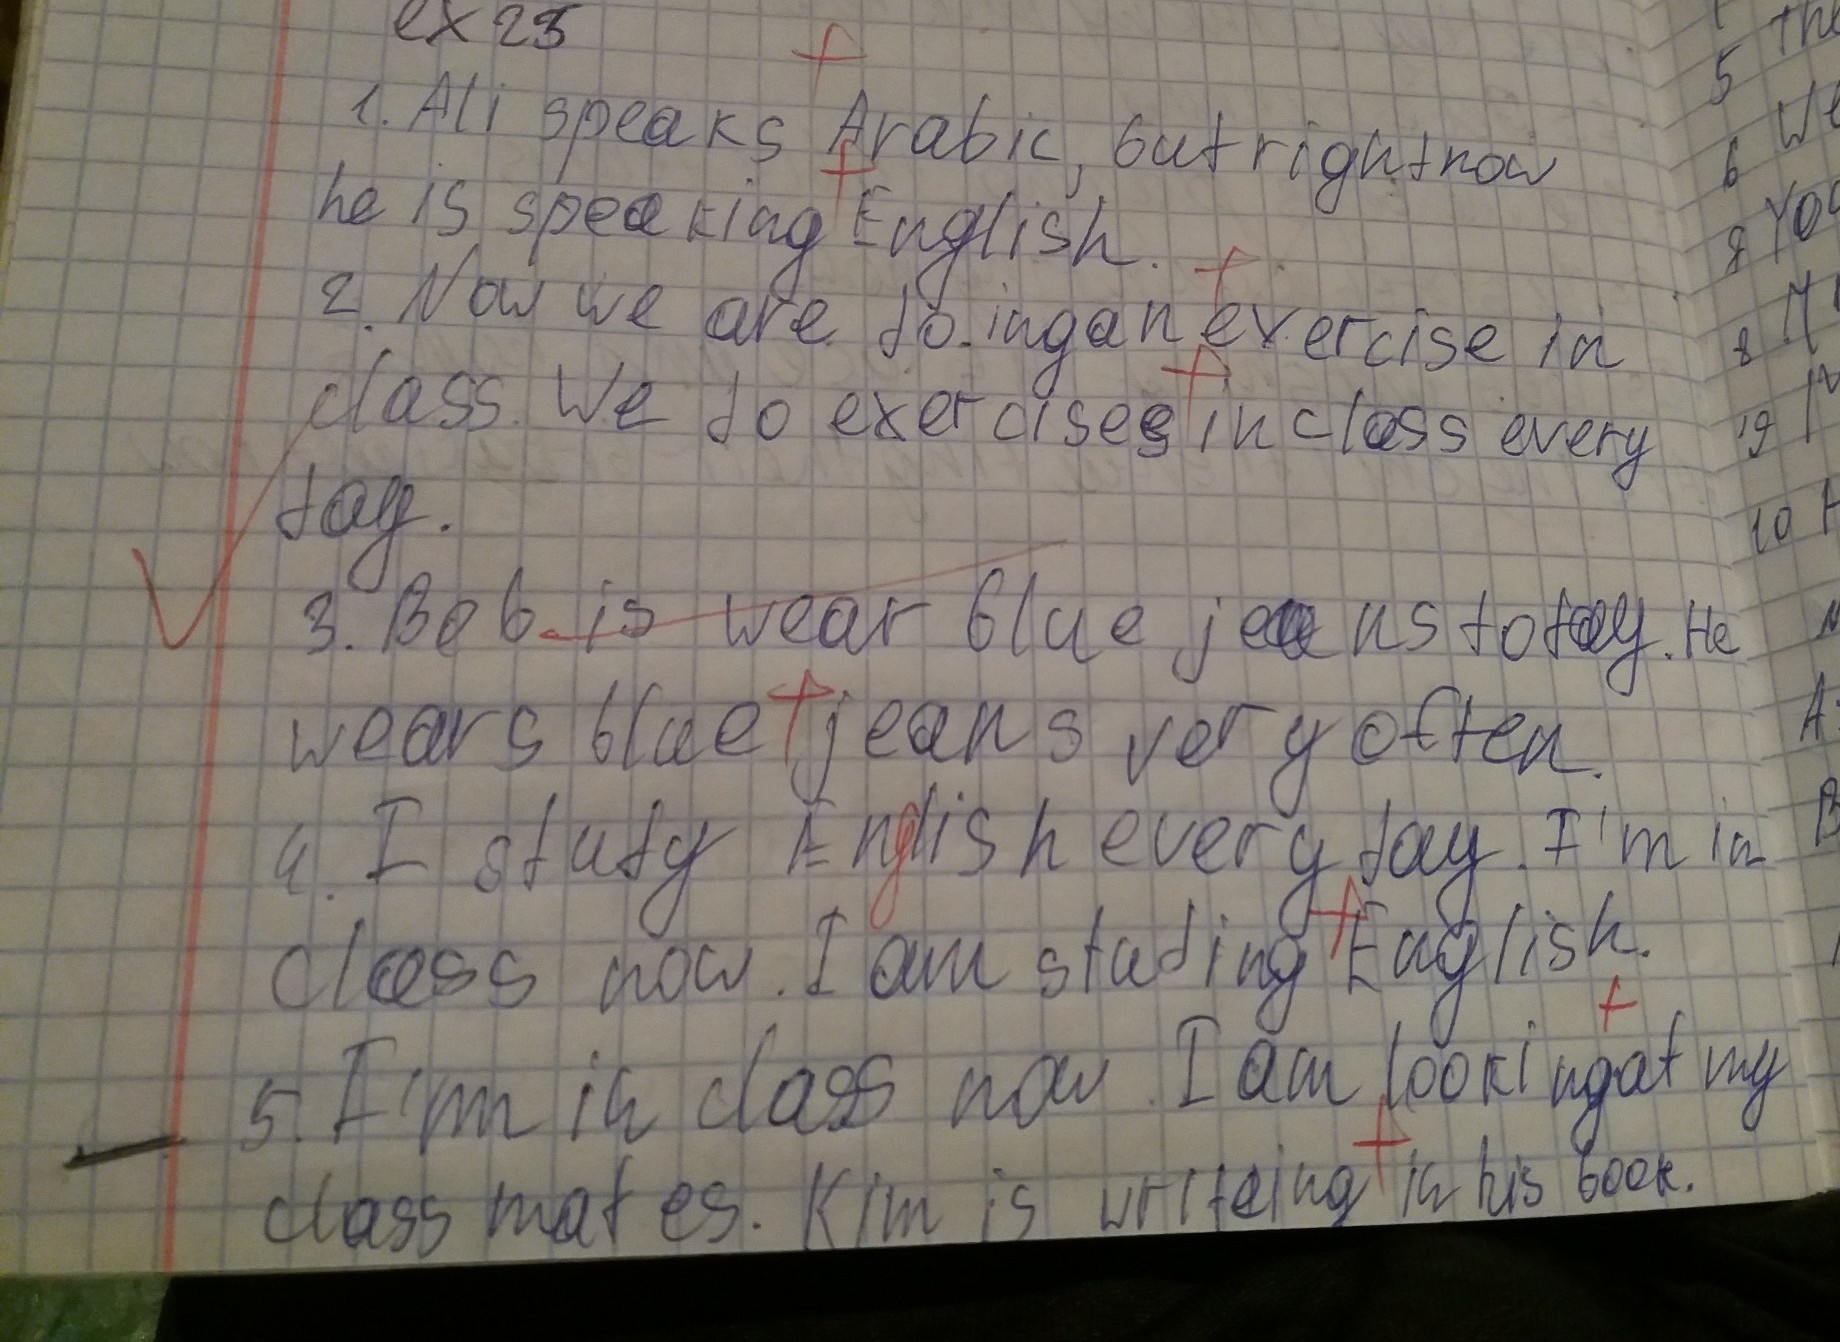 ex 25
1. Ali speaks Arabic, but right now
he is speaking English.
2. Now we are doing an exercise in
class. We do exercises in class every
day.
3. Bob is wear blue jeans today. He
wears blue jeans very often.
4. I study English every day. I'm in
class now. I am studing English.
5. I'm in class now. I am looking at my
classmates. Kim is writeing in his book.
5 The
6 We
8 You
8
19
10
A:
B